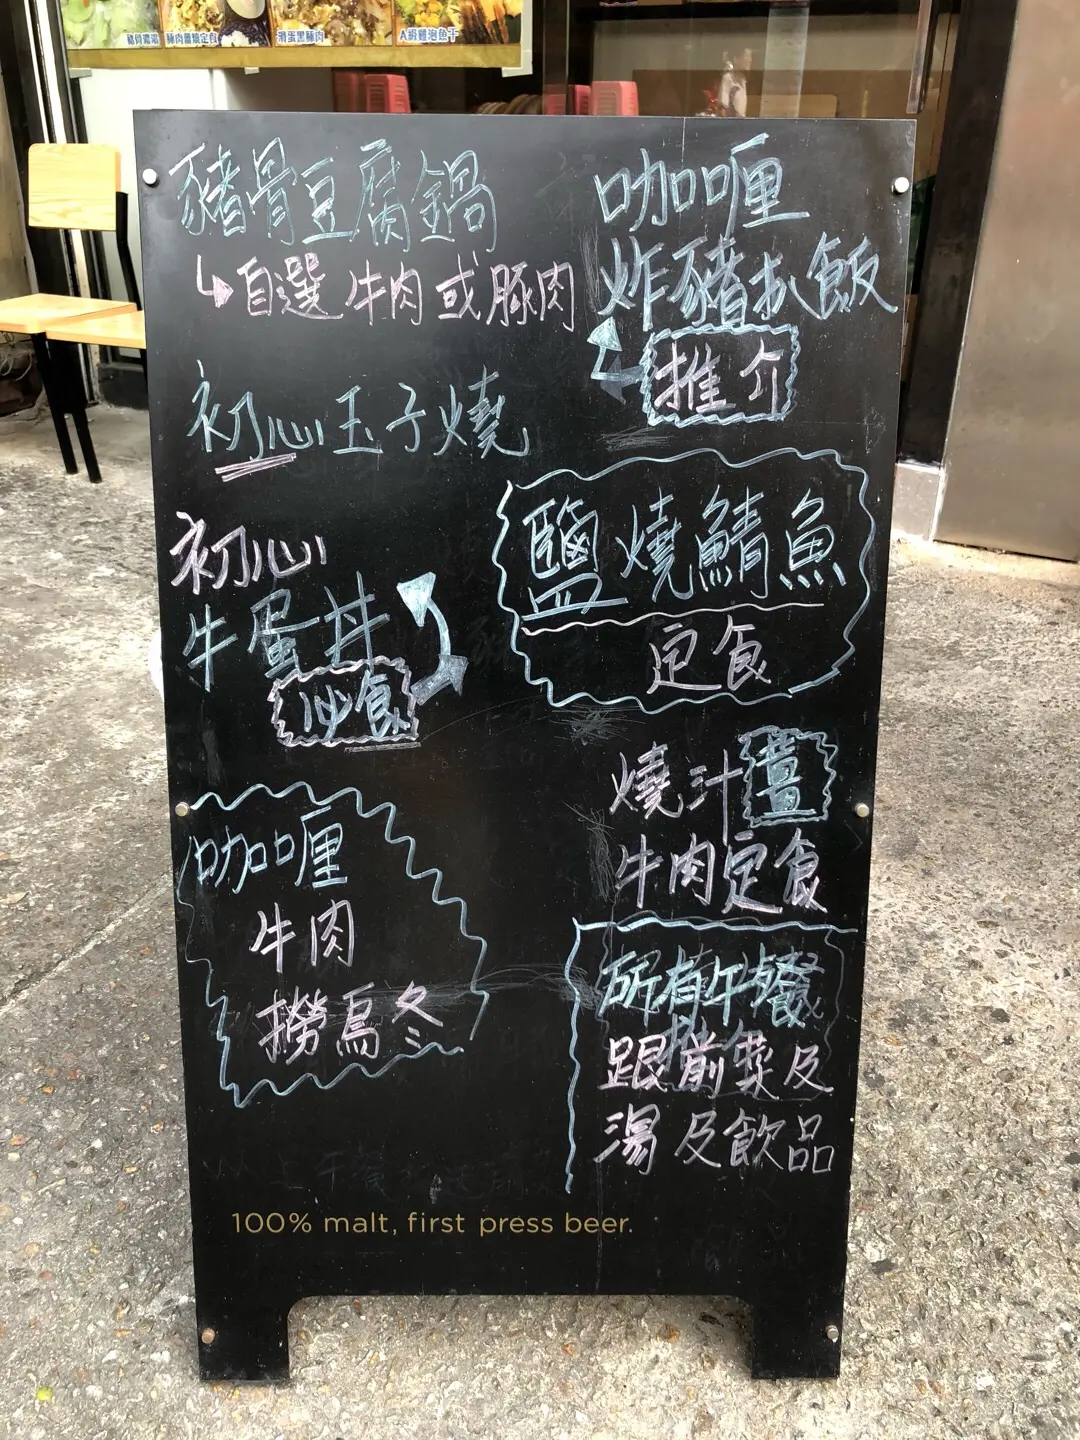 豬肉麵類定食
滑蛋黑豚肉
豬骨豆腐鍋
自選牛肉或豚肉
初心玉子燒
初心
牛蛋丼
必食
咖喱
牛肉
撈烏冬
咖喱
炸豬扒飯
推介
鹽燒鯖魚
定食
燒汁薑
牛肉定食
所有午餐
跟前菜及
湯及飲品
100% malt, first press beer.